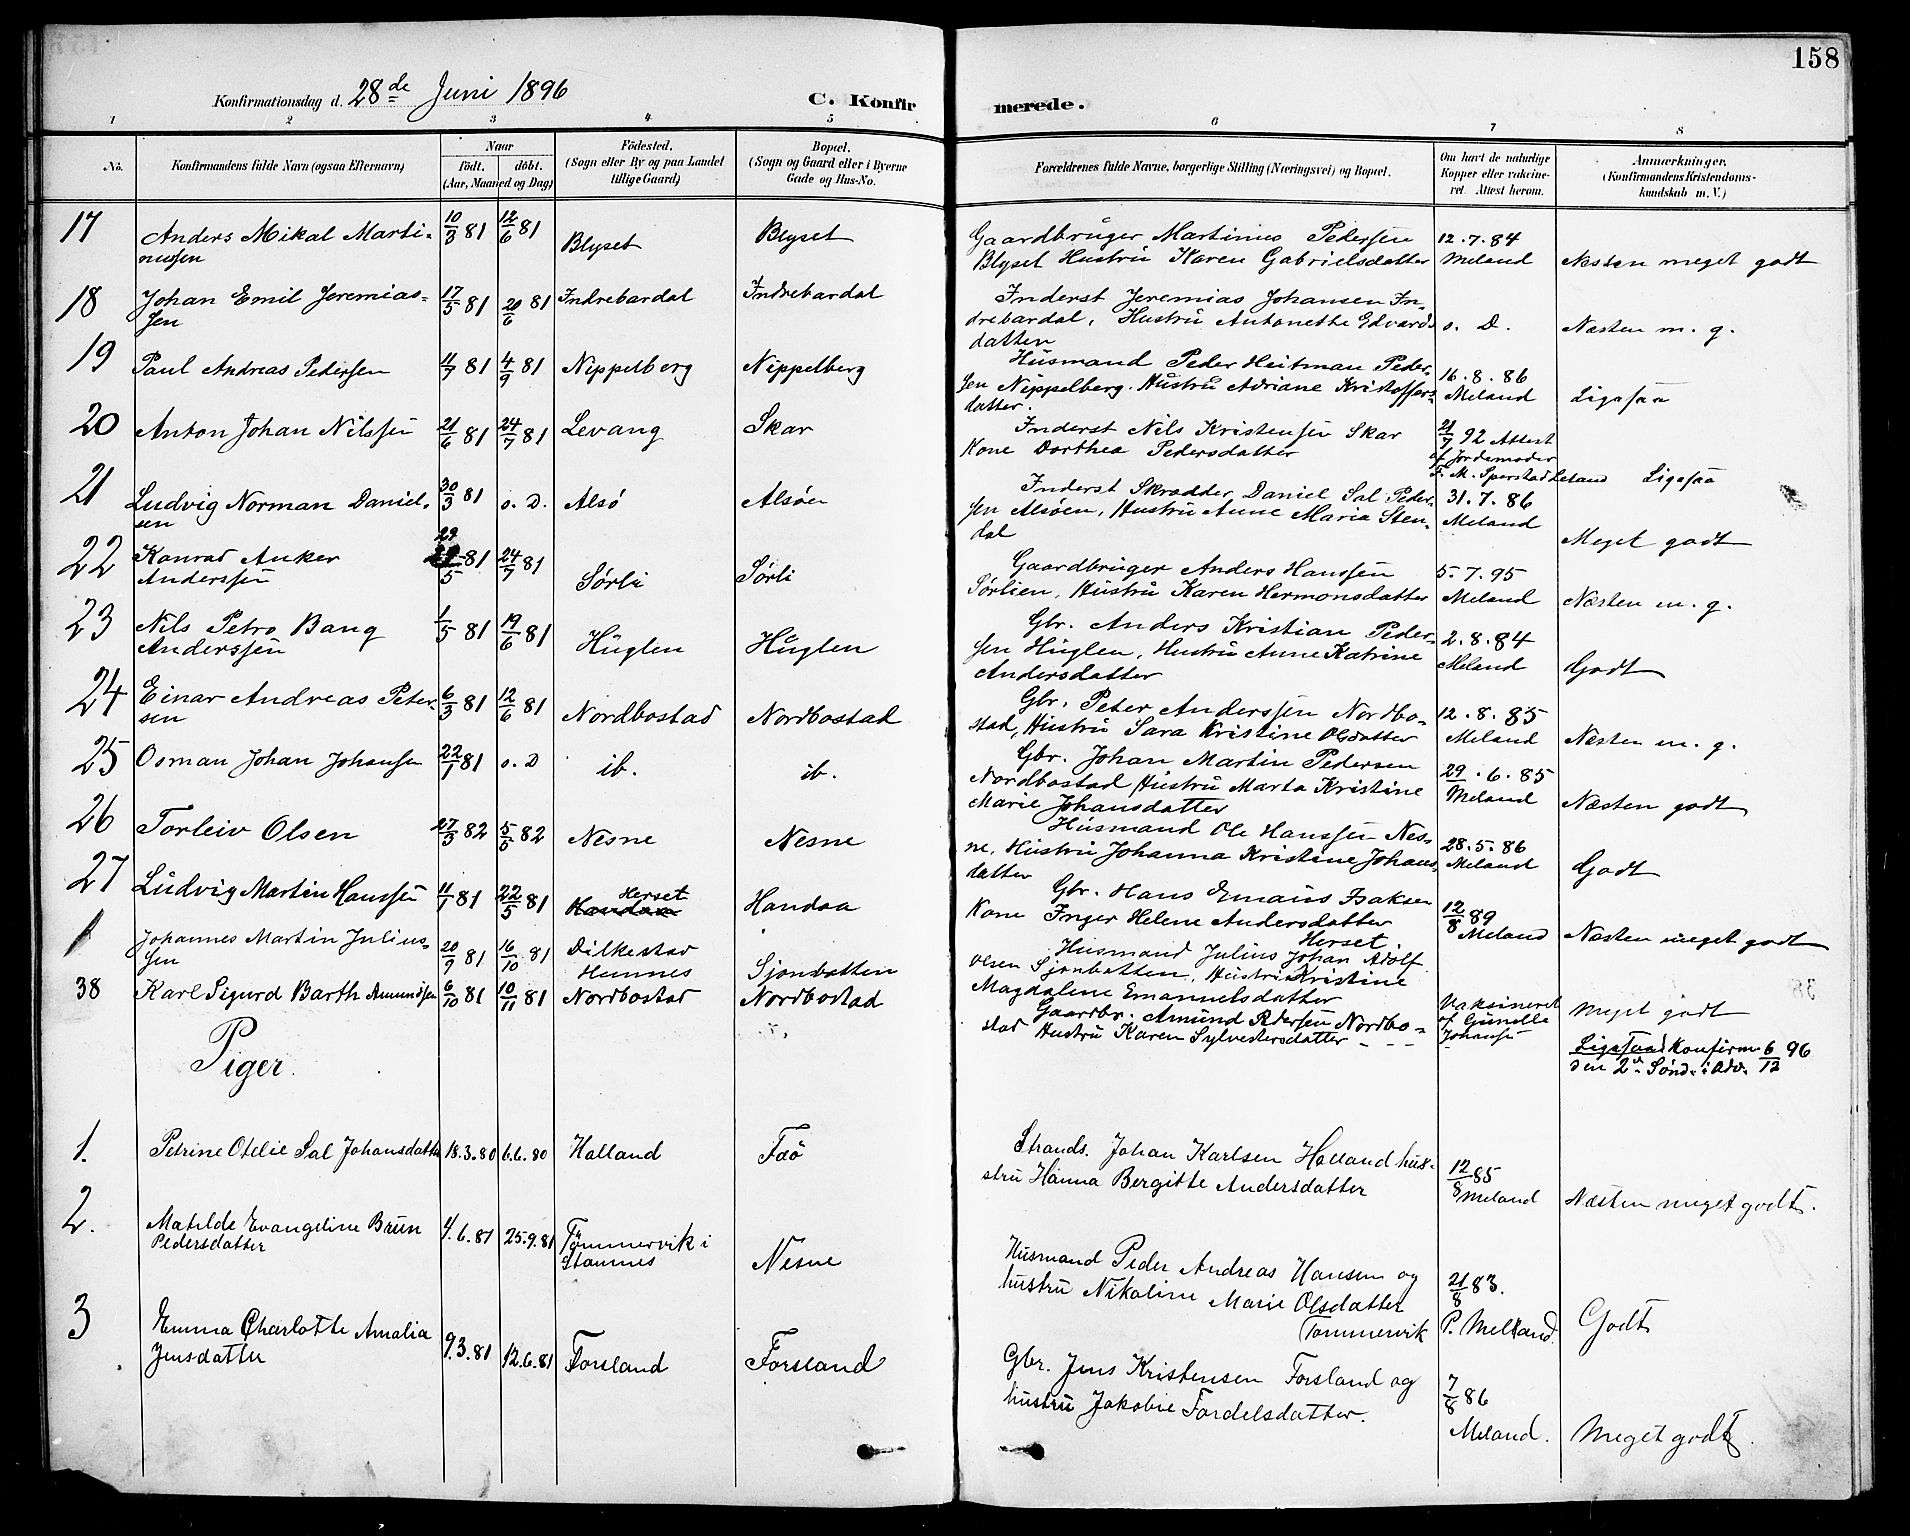 158
Konfirmationsdag d. 28de Juni 1896
C. Konfirmerede.
1 2 3 4 5 6 7 8
No.
Konfirmandens fulde Navn (ogsaa Efternavn)
Naar
födt. döbt.
(Aar, Maaned og Dag)
Födested.
(Sogn eller By og paa Landet
tillige Gaard)
Bopæl.
(Sogn og Gaard eller i Byerne
Gade og Hus-No.
Forældrenes fulde Navne, borgerlige Stilling (Næringsvei) og Bopæl.
Om havt de naturlige
Kopper eller vaksine-
ret. Attest herom.
Anmærkninger.
(Konfirmandens Kristendoms-
kundskab m. V.)
17 Anders Mikal Marti-
nussen 10/3 81 12/6 81 Blyset Blyset
Gaardbruger Martinus Pedersen 12.7.84
Blyset Hustru Karen Gabrielsdatter Meland Næsten meget godt
18 Johan Emil Jeremias-
sen 17/5 81 20/6 81 Indrebardal Indrebardal
Inderst Jeremias Johansen In-
drebardal, Hustru Antonette Edvards o. D. Næsten m. g.
datten
19 Paul Andreas Pedersen 11/7 81 4/9 81 Nippelberg Nippelberg
Husmand Peder Heitman Peder-
sen Nippelberg. Hustru Adriane Kristoffers- 16.8.86
datter. Meland Ligesaa
20 Anton Johan Nilssen 21/6 81 24/7 81 Levang Skar
Inderst Nils Kristensen Skar 21/7 92 Attest
Kone Dorthea Pedersdatter af Jordemoder
F. M. Sperstad Leland Ligesaa
21 Ludvig Norman Daniel-
sen 30/3 81 o. D. Alsö Alsöen
Inderst Skrædder Daniel Sal Peder- 31.7.86
sen Alsöen, Hustru Anne Maria Sten- Meland
dal Meget godt
22 Konrad Anker
Anderssen 29/5 81 24/7 81 Sørli Sørli
Gaardbruger Anders Hanssen 5.7.95
Sørlien, Hustru Karen Hermonsdatter Meland Næsten m. g.
23 Nils Petro Bang
Anderssen 1/5 81 19/6 81 Huglen Huglen
Gbr. Anders Kristian Peder- 2.8.84
sen Huglen, Hustru Anne Katrine Meland Godt
Andersdatter
24 Einar Andreas Peter-
sen 6/3 81 12/6 81 Nordbostad Nordbostad
Gbr. Peter Anderssen Nordbo- 12.8.85
stad, Hustru Sara Kristine Olsdatter Meland Næsten m. g.
25 Osman Johan Johansen 22/1 81 o. D ib. ib.
Gbr. Johan Martin Pedersen 29.6.85
Nordbostad Hustru Marta Kristine Meland Næsten godt
Marie Johansdatter
26 Torleiv Olsen 27/3 82 5/5 82 Nesne Nesne
Husmand Ole Hanssen Nes-
ne, Hustru Johanna Kristine Johans- 28.5.86
datter Meland Godt
27 Ludvig Martin Hanssen 11/1 81 22/5 81 Herset Handaa
Gbr. Hans Emaus Isaksen 12/8 89
Kone Inger Helene Andersdatter Meland Næsten meget godt
Herset.
Johannes Martin Julius-
sen 20/9 81 16/10 81 Dilkestad
Hemnes Sjonbotten
Husmand Julius Johan Adolf
Olsen Sjonbotten, Hustru Kristine
Magdalene Emanuelsdatter Meget godt
38 Karl Sigurd Barth Amundsen 6/10 81 10/11 81 Nordbostad Nordbostad
Gaardbr. Amund Pedersen Nordbo- Vaksineret
stad Hustru Karen Sylvestersdatter - - - af Gunelle
Johansen
Ligesaa Konfirm. 6/12 96
den 2d. Sønd. i Adv.
Piger.
1. Petrine Otelie Sal Johansdatter 18.3.80 6.6.80 Halland
Strands. Johan Karlsen Halland hus-
stru Hanna Bergitte Andersdatter 12/8 85
Meland Næsten meget godt.
2. Matilde Evangeline Brun
Pedersdatter 4.6.81 25.9.81 Tømmervik i
Stamnes Nesne
Husmand Peder Andreas Hansen og
hustru Nikoline Marie Olsdatter 21/8 83.
Tommervik P. Melland. Godt
3 Emma Charlotte Amalia
Jensdatter 9.3.81 12.6.81 Forsland Forsland
Gbr. Jens Kristensen Forsland og
hustru Jakobie Fordelsdatter. 7/8 86
Meland. Meget godt.